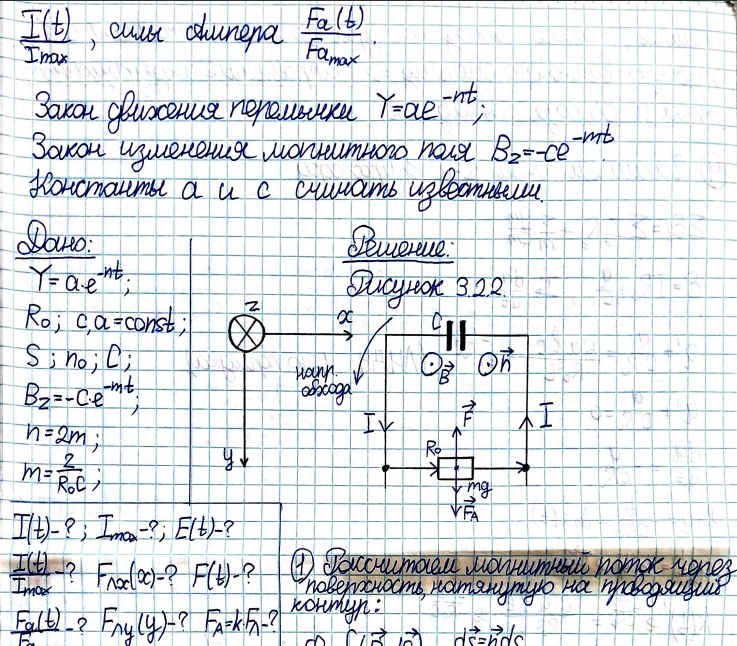 I(t)/Imax, силы Ампера Fa(t)/Famax.
Закон движения перемычки Y=ae^-nt;
Закон изменения магнитного поля Bz=-ce^-mt.
Константы a и c считать известными.
Дано:
Y=a·e^-nt;
R₀; c,a=const;
S; n₀; C;
Bz=-C·e^-mt;
n=2m;
m=2/R₀C;
I(t)-?; Imax-?; E(t)-?
I(t)/Imax-? Fлx(x)-? F(t)-?
Fa(t)/Fa-? Fлy(y)-? FA=k·Fл-?
Решение:
Рисунок 3.2.2.
z
x
y
напр.
обхода
C
B
n
I
I
F
R₀
mg
FA
① Рассчитаем магнитный поток через
поверхность, натянутую на проводящий
контур:
ds=nds